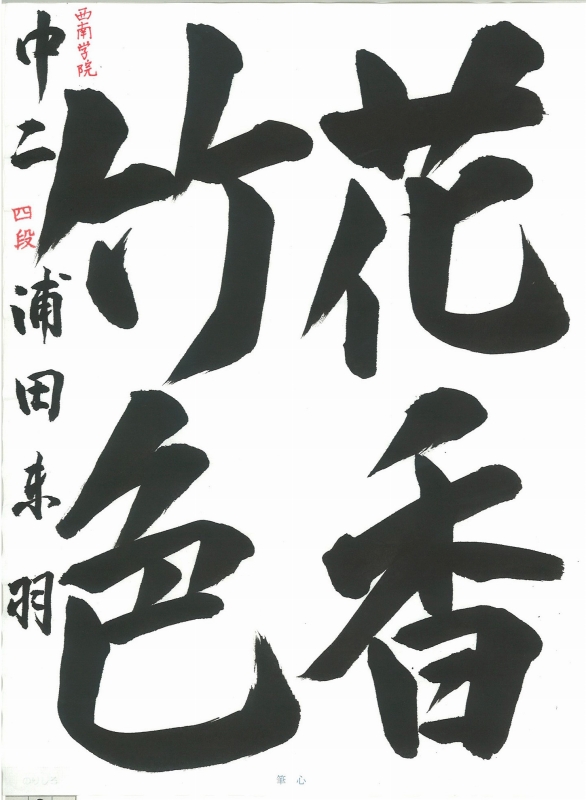 花香
竹色
西南学院
中二 四段 浦田東羽
筆心